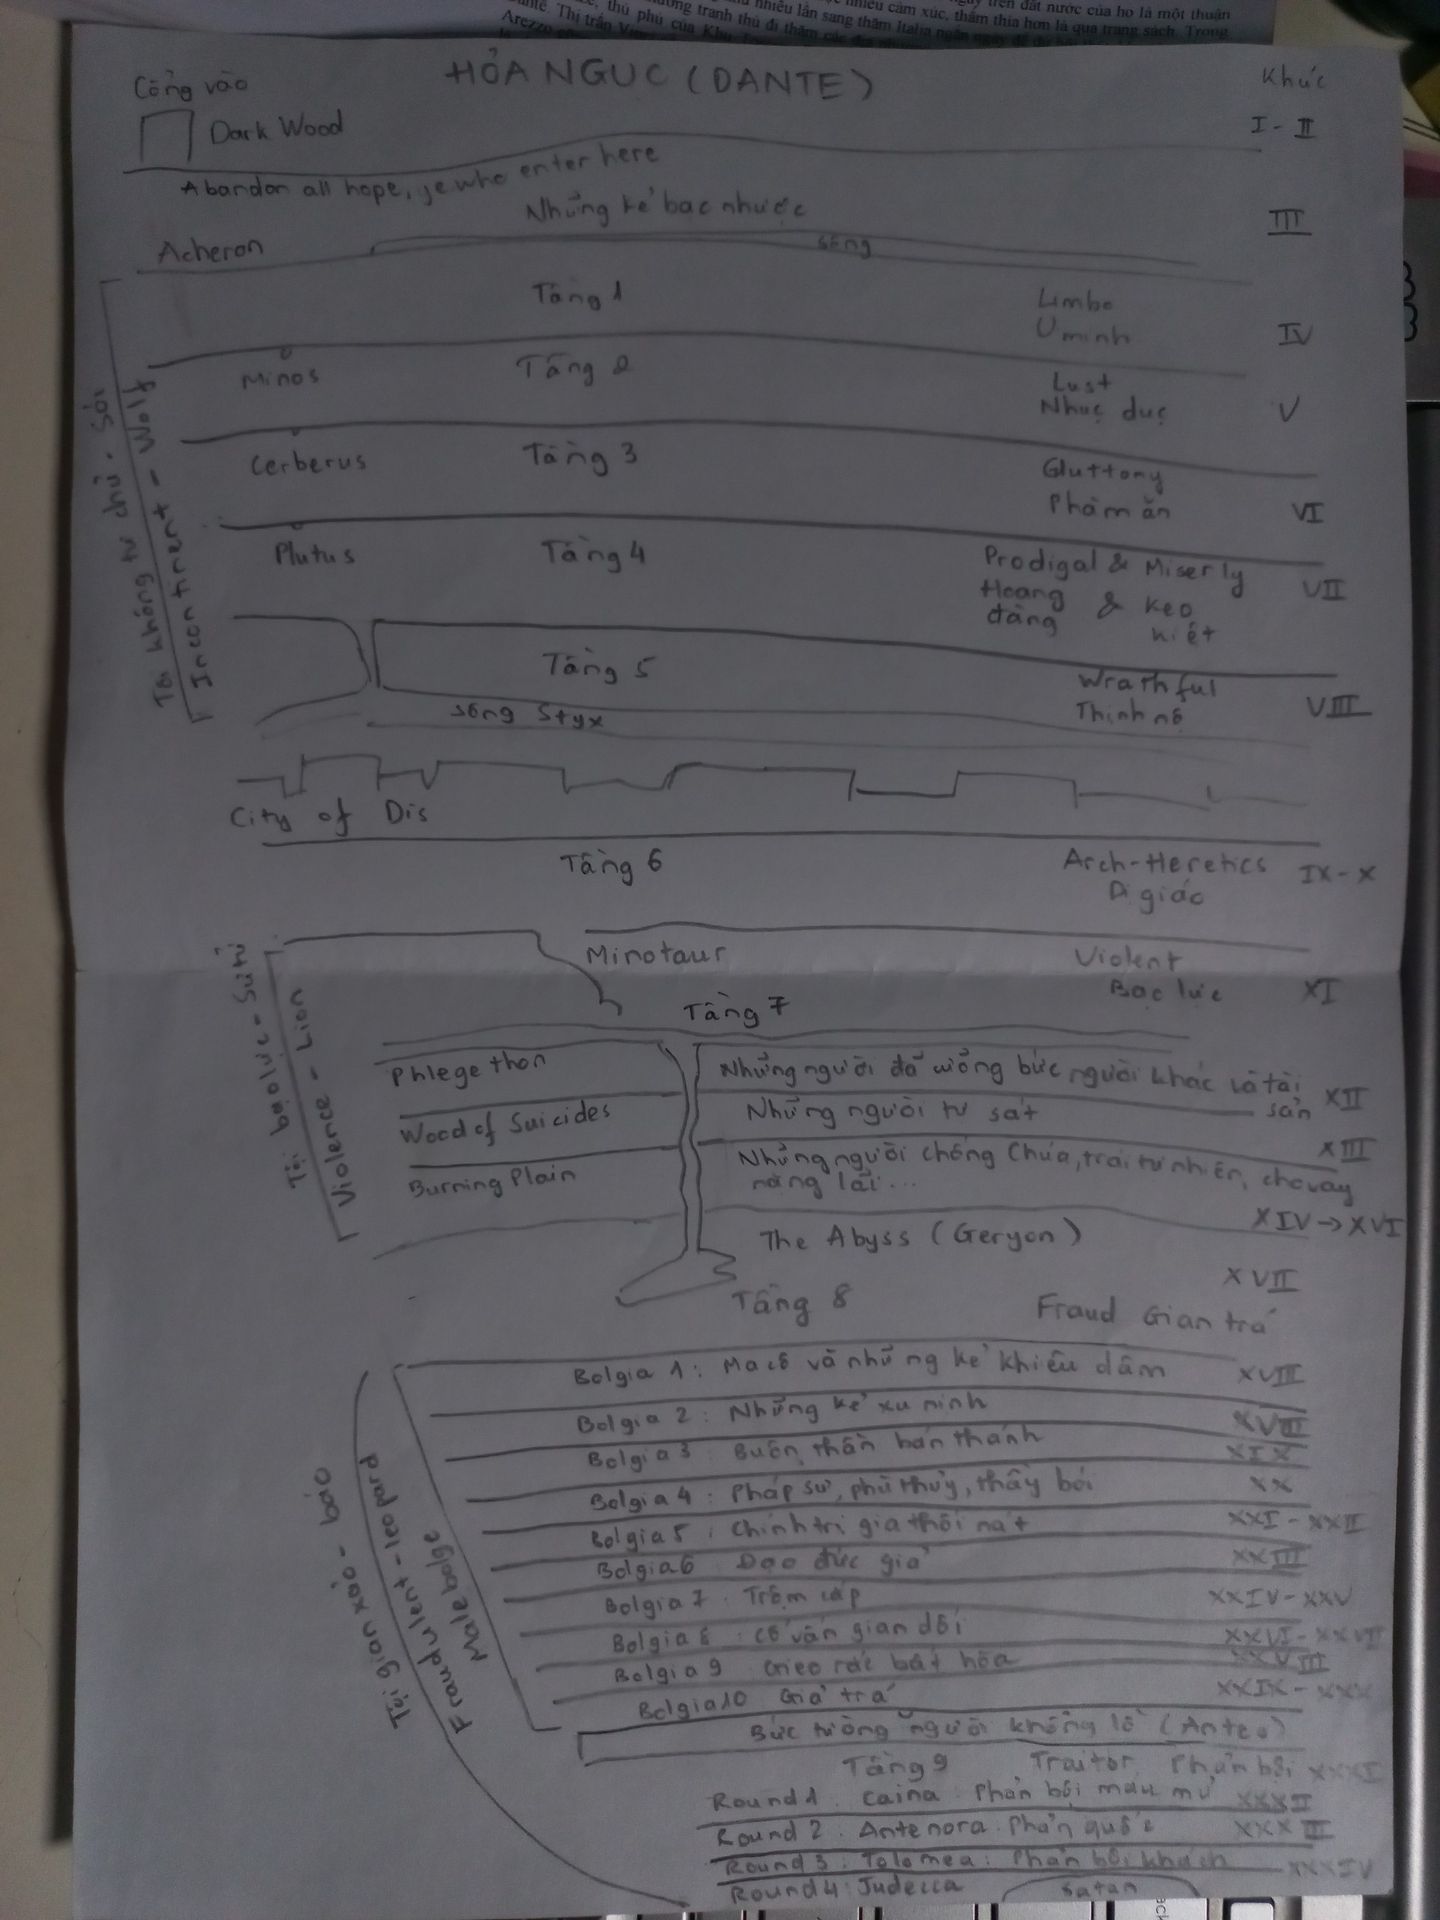 nguy trên đất nước của họ là một thuần
nhiều cảm xúc, thấm thía hơn là qua trang sách. Trong
nhiều lần sang thăm Italia ngắn ngày
tranh thủ đi thăm
thủ phủ của
Arezzo
HỎA NGỤC (DANTE)
Cổng vào
Khúc
Dark Wood
I - II
Abandon all hope, ye who enter here
Những kẻ bạc nhược
III
Acheron
sông
Tầng 1
Limbo
U minh
IV
Minos
Tầng 2
Lust
Nhục dục
V
Cerberus
Tầng 3
Gluttony
Phàm ăn
VI
Plutus
Tầng 4
Prodigal & Miserly
Hoang đàng & keo kiệt
VII
Tội không tự chủ - Sói
Incontinent - Wolf
Tầng 5
Wrathful
Thịnh nộ
VIII
sông Styx
City of Dis
Tầng 6
Arch-Heretics
Dị giáo
IX - X
Minotaur
Violent
Bạo lực
XI
Tầng 7
Tội bạo lực - Sư tử
Violence - Lion
Phlegethon
Những người đã cưỡng bức người khác và tài sản
XII
Wood of Suicides
Những người tự sát
XIII
Burning Plain
Những người chống Chúa, trái tự nhiên, cho vay
nặng lãi...
XIV → XVI
The Abyss (Geryon)
XVII
Tầng 8
Fraud Gian trá
Bolgia 1: Ma cô và những kẻ khiêu dâm XVIII
Bolgia 2: Những kẻ xu nịnh XVIII
Bolgia 3: Buôn thần bán thánh XIX
Bolgia 4: Pháp sư, phù thủy, thầy bói XX
Bolgia 5: Chính trị gia thối nát XXI - XXII
Bolgia 6 Đạo đức giả XXIII
Bolgia 7: Trộm cắp XXIV - XXV
Bolgia 8: Cố vấn gian dối XXVI - XXVII
Bolgia 9 Gieo rắc bất hòa XXVIII
Bolgia 10 Giả trá XXIX - XXX
Tội gian xảo - báo
Fraudulent - leopard
Malebolge
Bức tường người khổng lồ (Anteo)
Tầng 9 Traitor Phản bội XXXI
Round 1: Caina: Phản bội máu mủ XXXII
Round 2: Antenora: Phản quốc XXXIII
Round 3: Tolomea: Phản bội khách XXXIV
Round 4: Judecca Satan